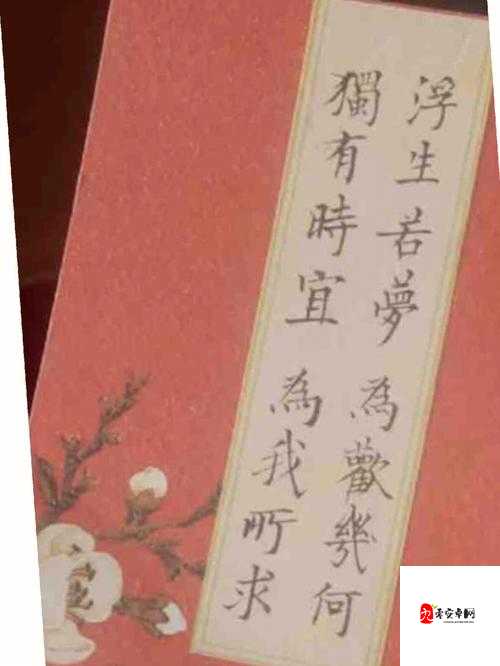 浮生若夢 為歡幾何
獨有時宜 為我所求
零安卓网